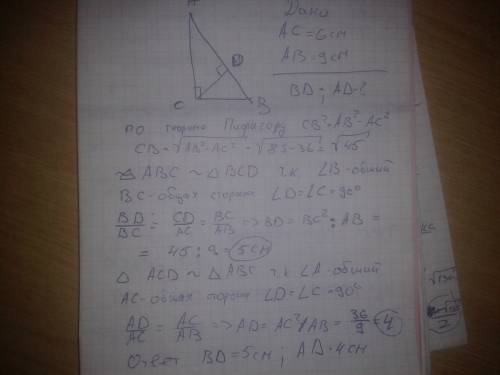 A
D
C
B
Дано
AC = 6см
AB = 9см
BD; AD-?
по теореме Пифагору CB²=AB²-AC²
CB=√AB²-AC² = √85-36 = √45
△ ABC ∼ △ BCD т.к. ∠B-общий
BC-общая сторона ∠D=∠C=90°
BD/BC = CD/AC = BC/AB => BD = BC² : AB =
= 45 : 9 = 5см
△ ACD ∼ △ ABC т.к. ∠A-общий
AC-общая сторона ∠D=∠C=90°
AD/AC = AC/AB => AD = AC²/AB = 36/9 = 4
Ответ BD=5см; AD=4см